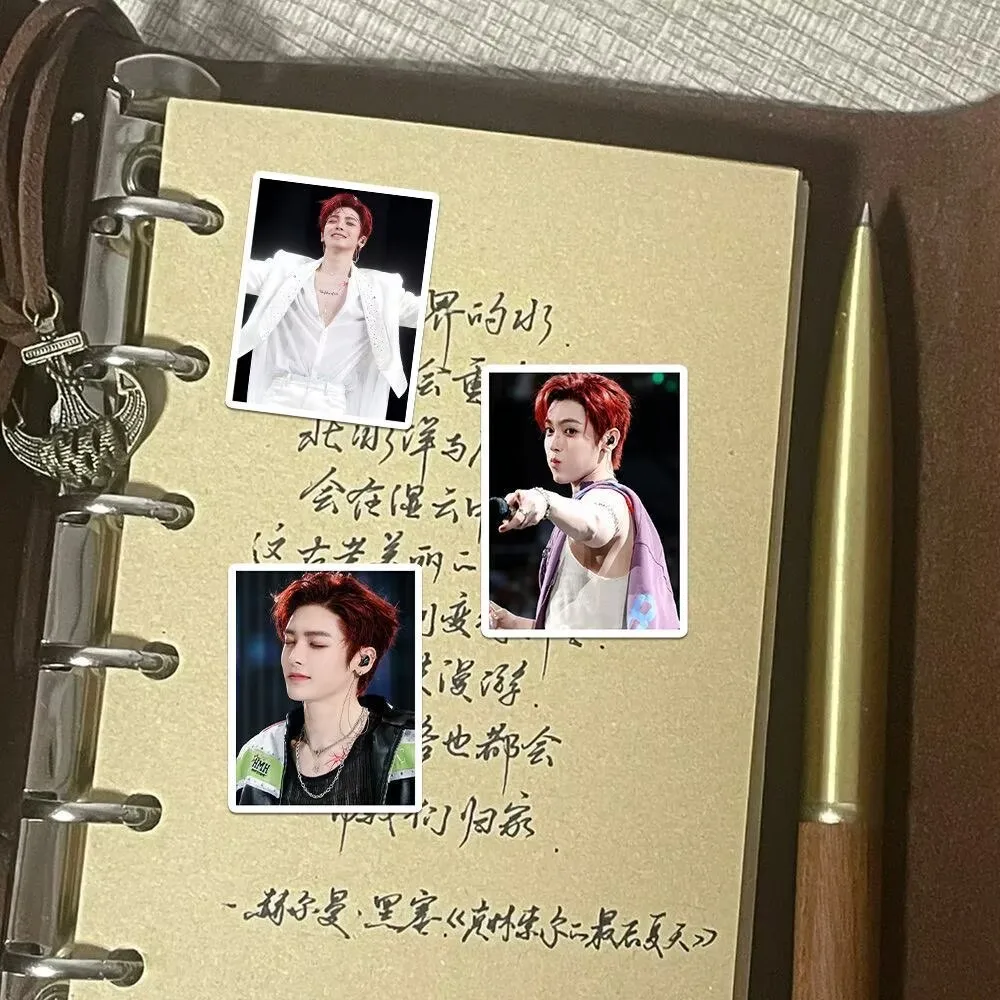 界的水.
会重
北冰洋与
会在湿云中
这古老美丽的
变
漫游.
也都会
我们归家.
-赫尔曼·黑塞《克林索尔的最后夏天》
HMH